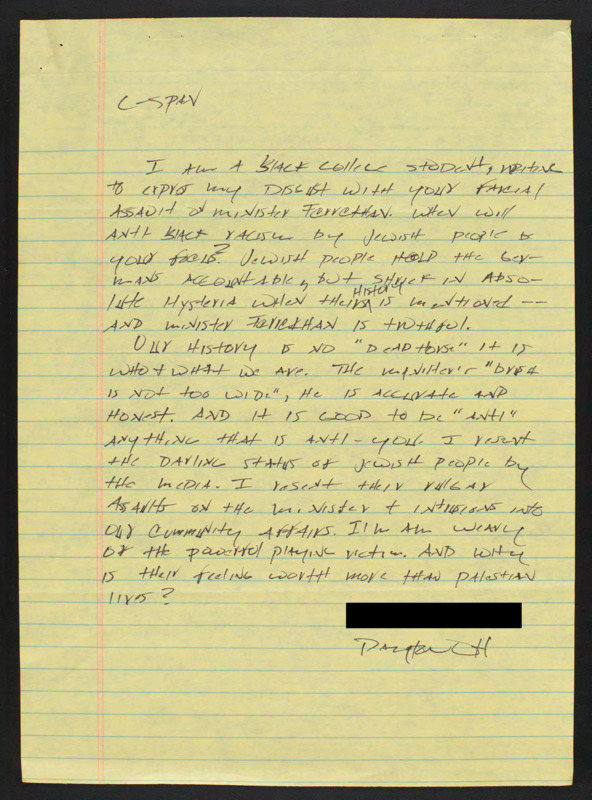 C-SPAN
I am A Black college student, writing
to expres my DISGUST with your FACIAL
ASSAULT of minister FERREKHAN. When will
ANTI Black racism by Jewish people be
your focus? Jewish people HOLD the Ger-
mans ACCOUNTABLE, but SHRIEK IN Abso-
lute Hysteria when their History is mentioned --
AND minister FERREKHAN is truthful.
Our History is no "DEAD HORSE" it is
who + what we are. The minister's
is not too wide", He is ACCURATE AND
Honest. AND it is GOOD to be "ANTI"
Anything that is anti-you. I resent
the DARLING status of Jewish people by
the media. I resent their vulgar
Assaults on the minister + intrusions into
our community affairs. I am weary
of the powerful playing victim. AND why
is their feeling worth more than palestian
lives?
Dayton OH